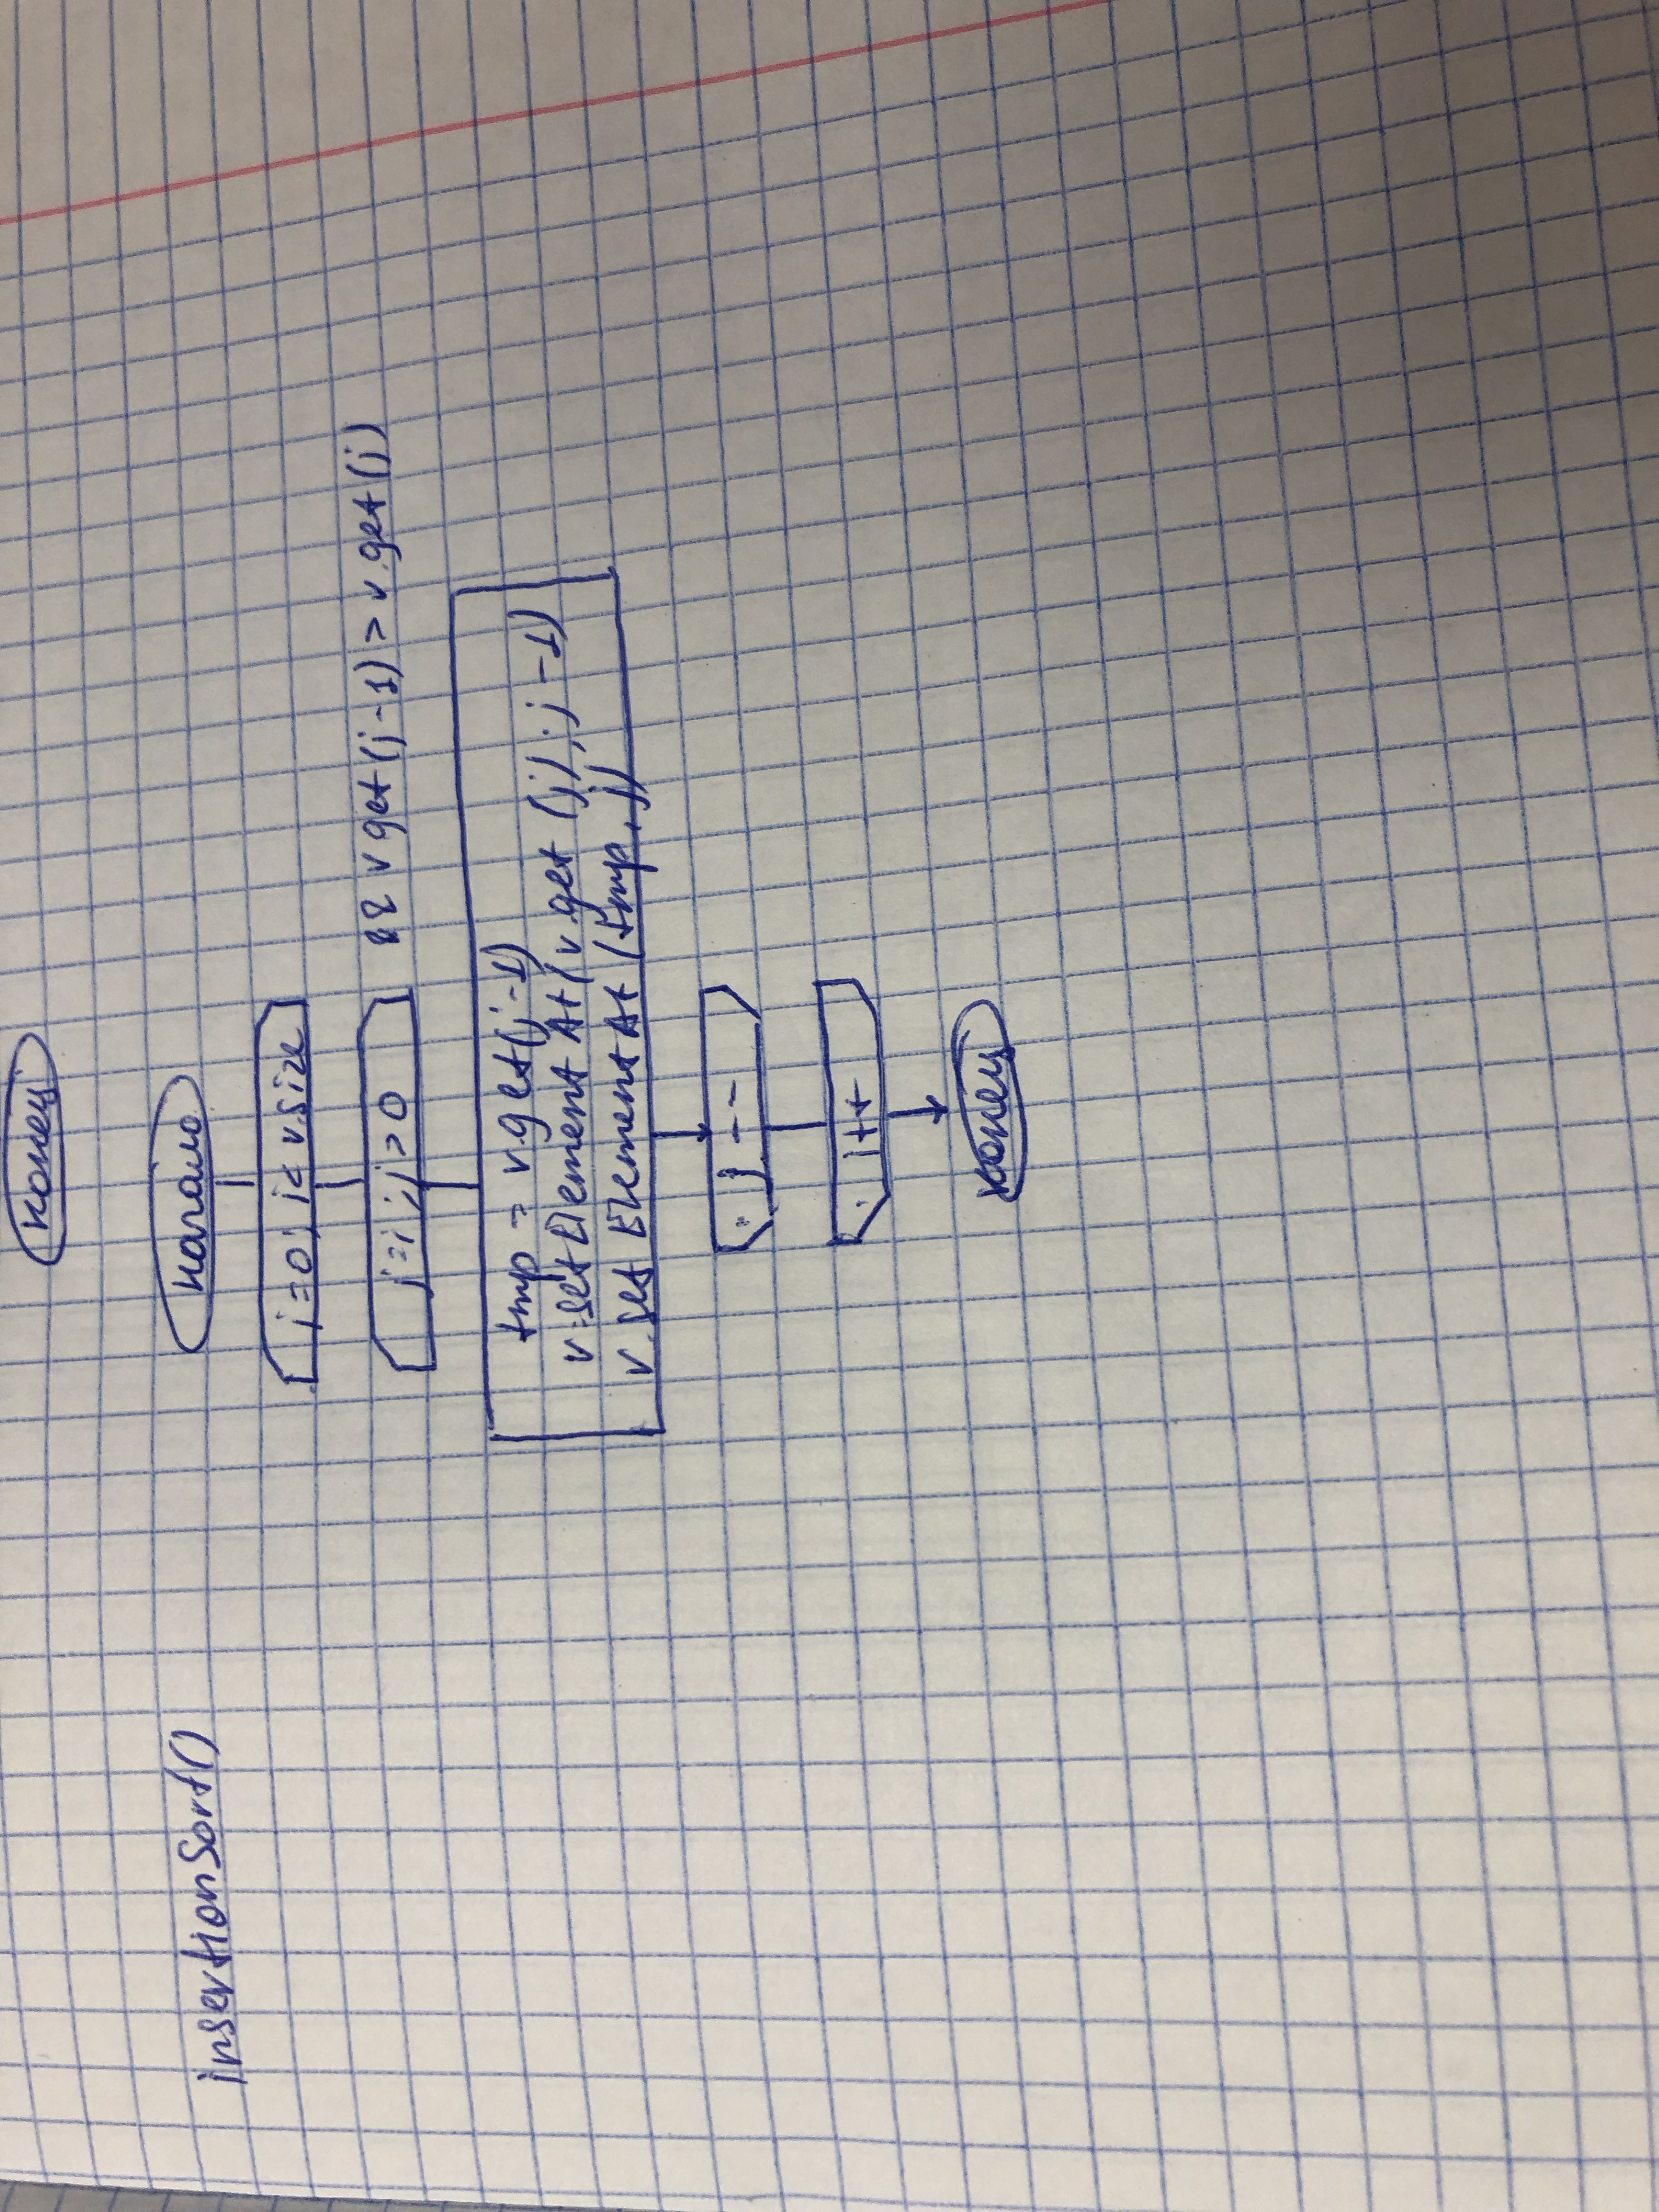 конец
insertionSort()
начало
i=0; i< v.size
j=i ; j > 0 && v get (j-1) > v.get (j)
tmp = v.get(j-1)
v.setElement At (v.get (j), j-1)
v.set Element At (tmp, j)
j --
i++
конец